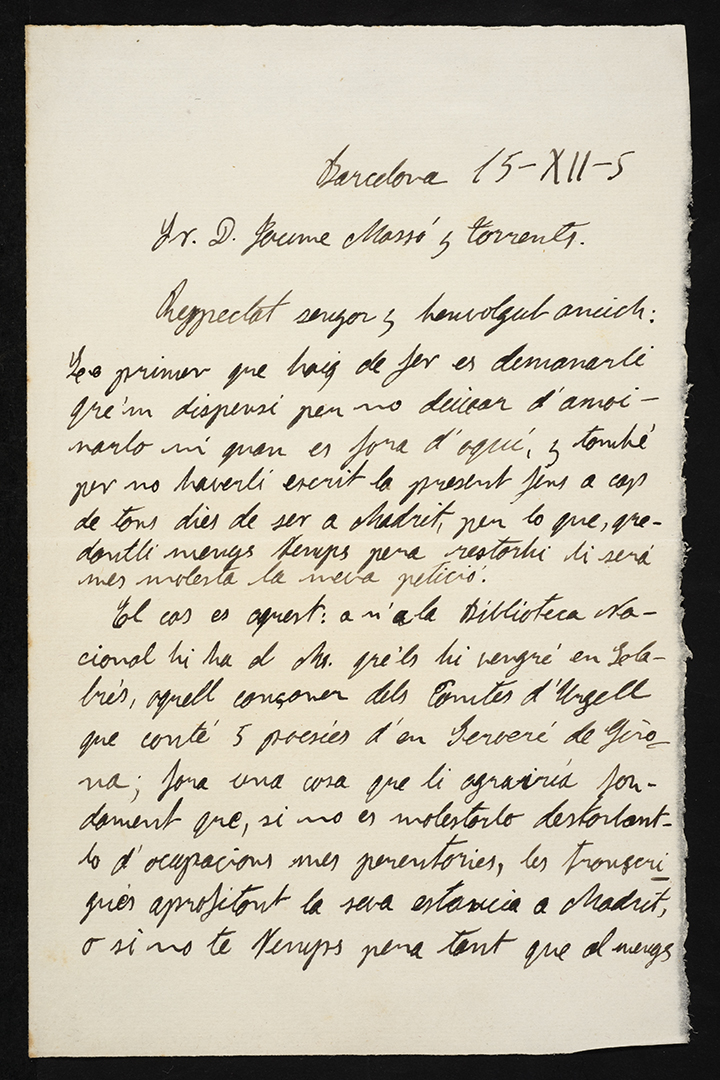 Barcelona 15-XII-5
Sr. D. Jaume Massó y Torrents.
Respectat senyor y benvolgut amich:
Lo primer que haig de fer es demanarli
qre'm dispensi per no deixar d'amoi-
narlo ni quan es fora d'aquí, y també
per no haverli escrit la present fins a cap
de tans dies de ser a Madrit, per lo que, que-
dantli menys temps pera restarhi li será
mes molesta la meva petició.
El cas es aquest: a n'a la Biblioteca Na-
cional hi ha el Ms. qre'ls hi vengré en Sala-
brés, aquell cançoner dels Comtes d'Urgell
que conté 5 poesíes d'en Serverí de Giro-
na; fora una cosa que li agrairía fon-
dament que, si no es molestarlo destorbant-
lo d'ocupacions mes perentóries, les transcri-
gués aprofitant la seva estancia a Madrit,
o si no te temps pera tant que al menys